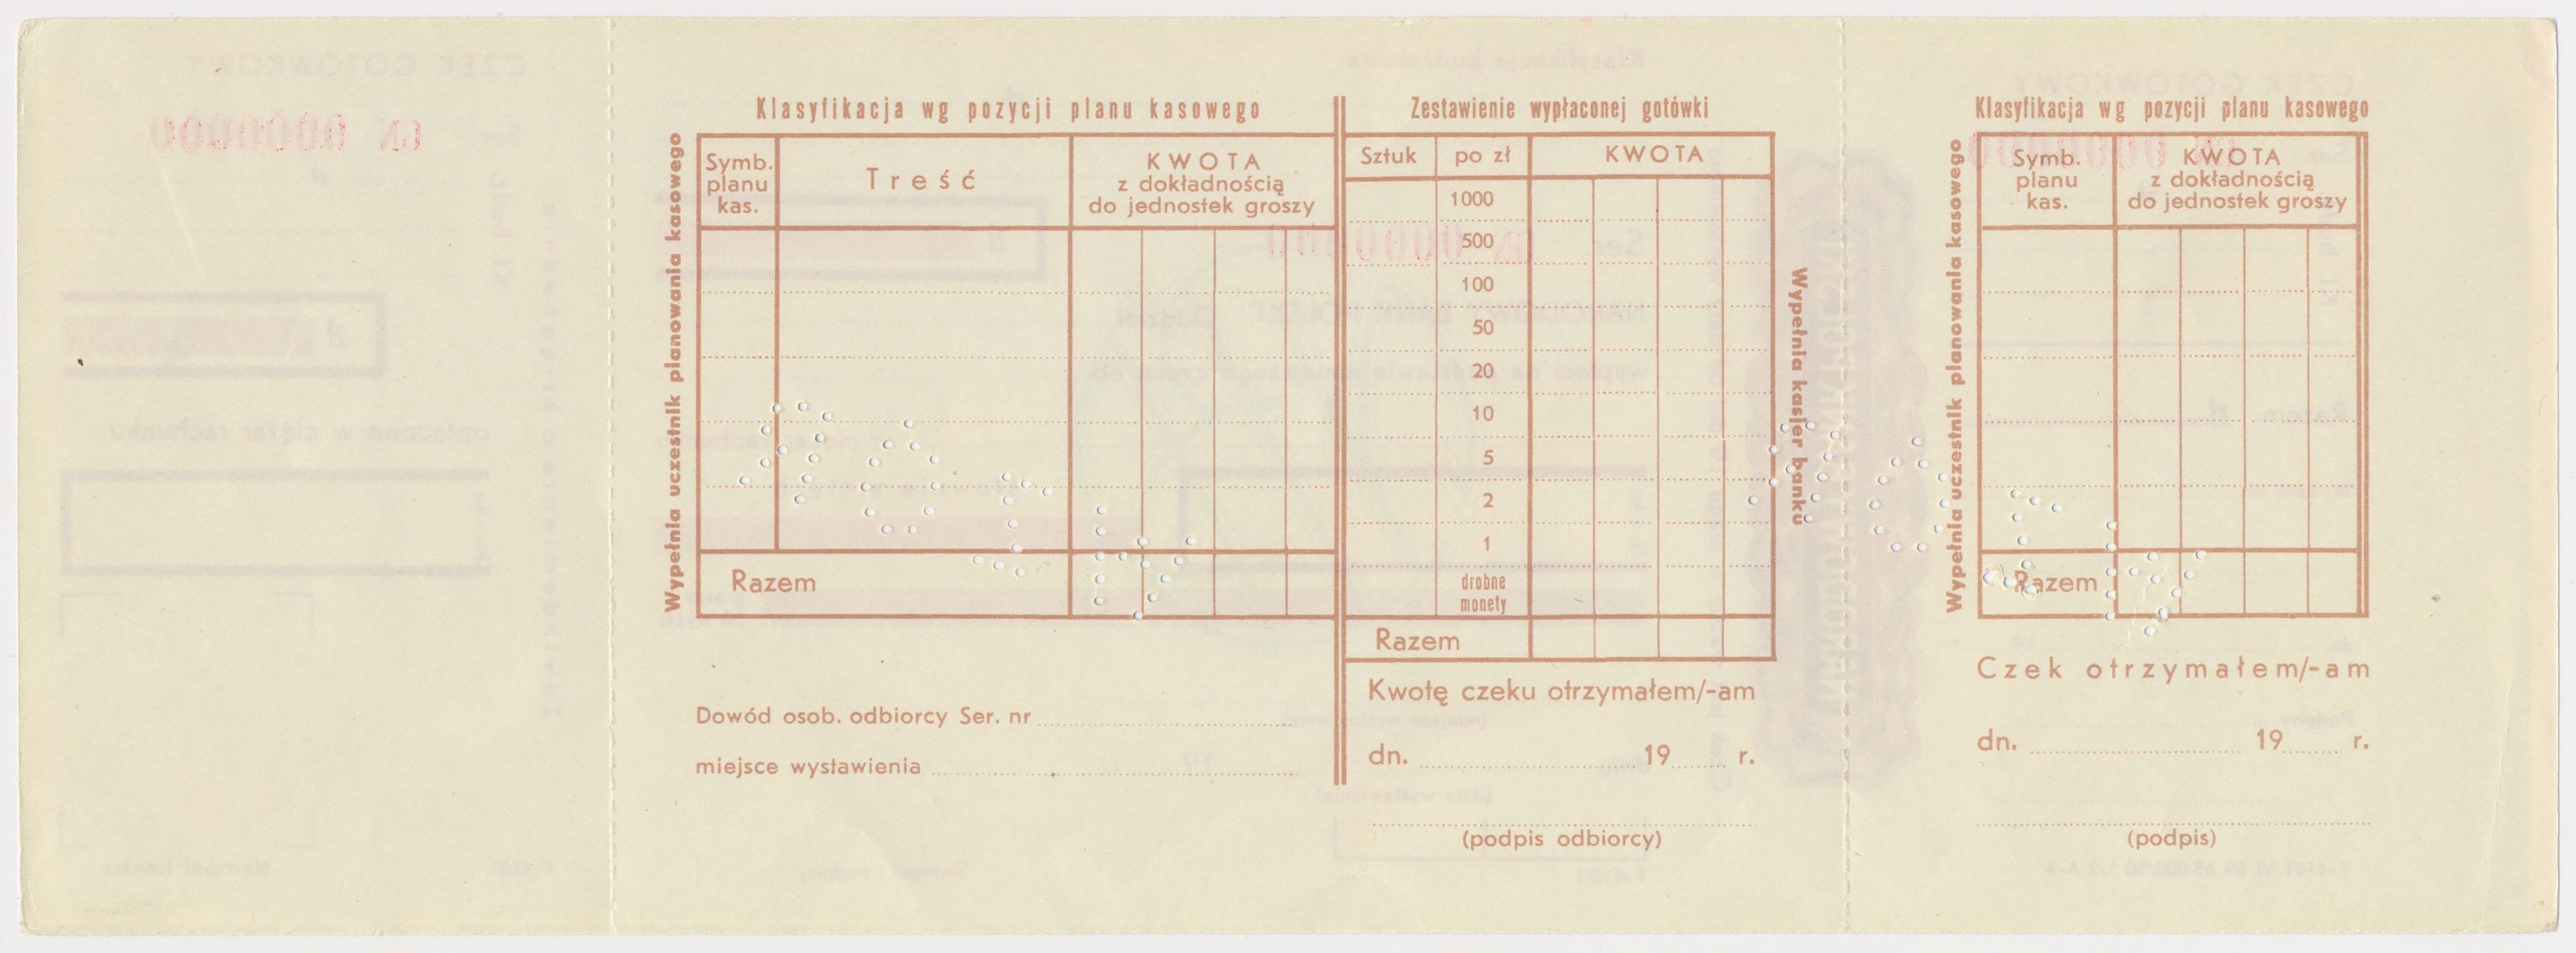 Klasyfikacja wg pozycji planu kasowego
Wypełnia uczestnik planowania kasowego
Symb.
planu
kas.
Treść
KWOTA
z dokładnością
do jednostek groszy
Razem
Dowód osob. odbiorcy Ser. nr
miejsce wystawienia
Zestawienie wypłaconej gotówki
Sztuk
po zł
KWOTA
1000
500
100
50
20
10
5
2
1
drobne
monety
Razem
Wypełnia kasjer banku
Kwotę czeku otrzymałem/-am
dn. 19 r.
(podpis odbiorcy)
Klasyfikacja wg pozycji planu kasowego
Wypełnia uczestnik planowania kasowego
Symb.
planu
kas.
KWOTA
z dokładnością
do jednostek groszy
Razem
Czek otrzymałem/-am
dn. 19 r.
(podpis)